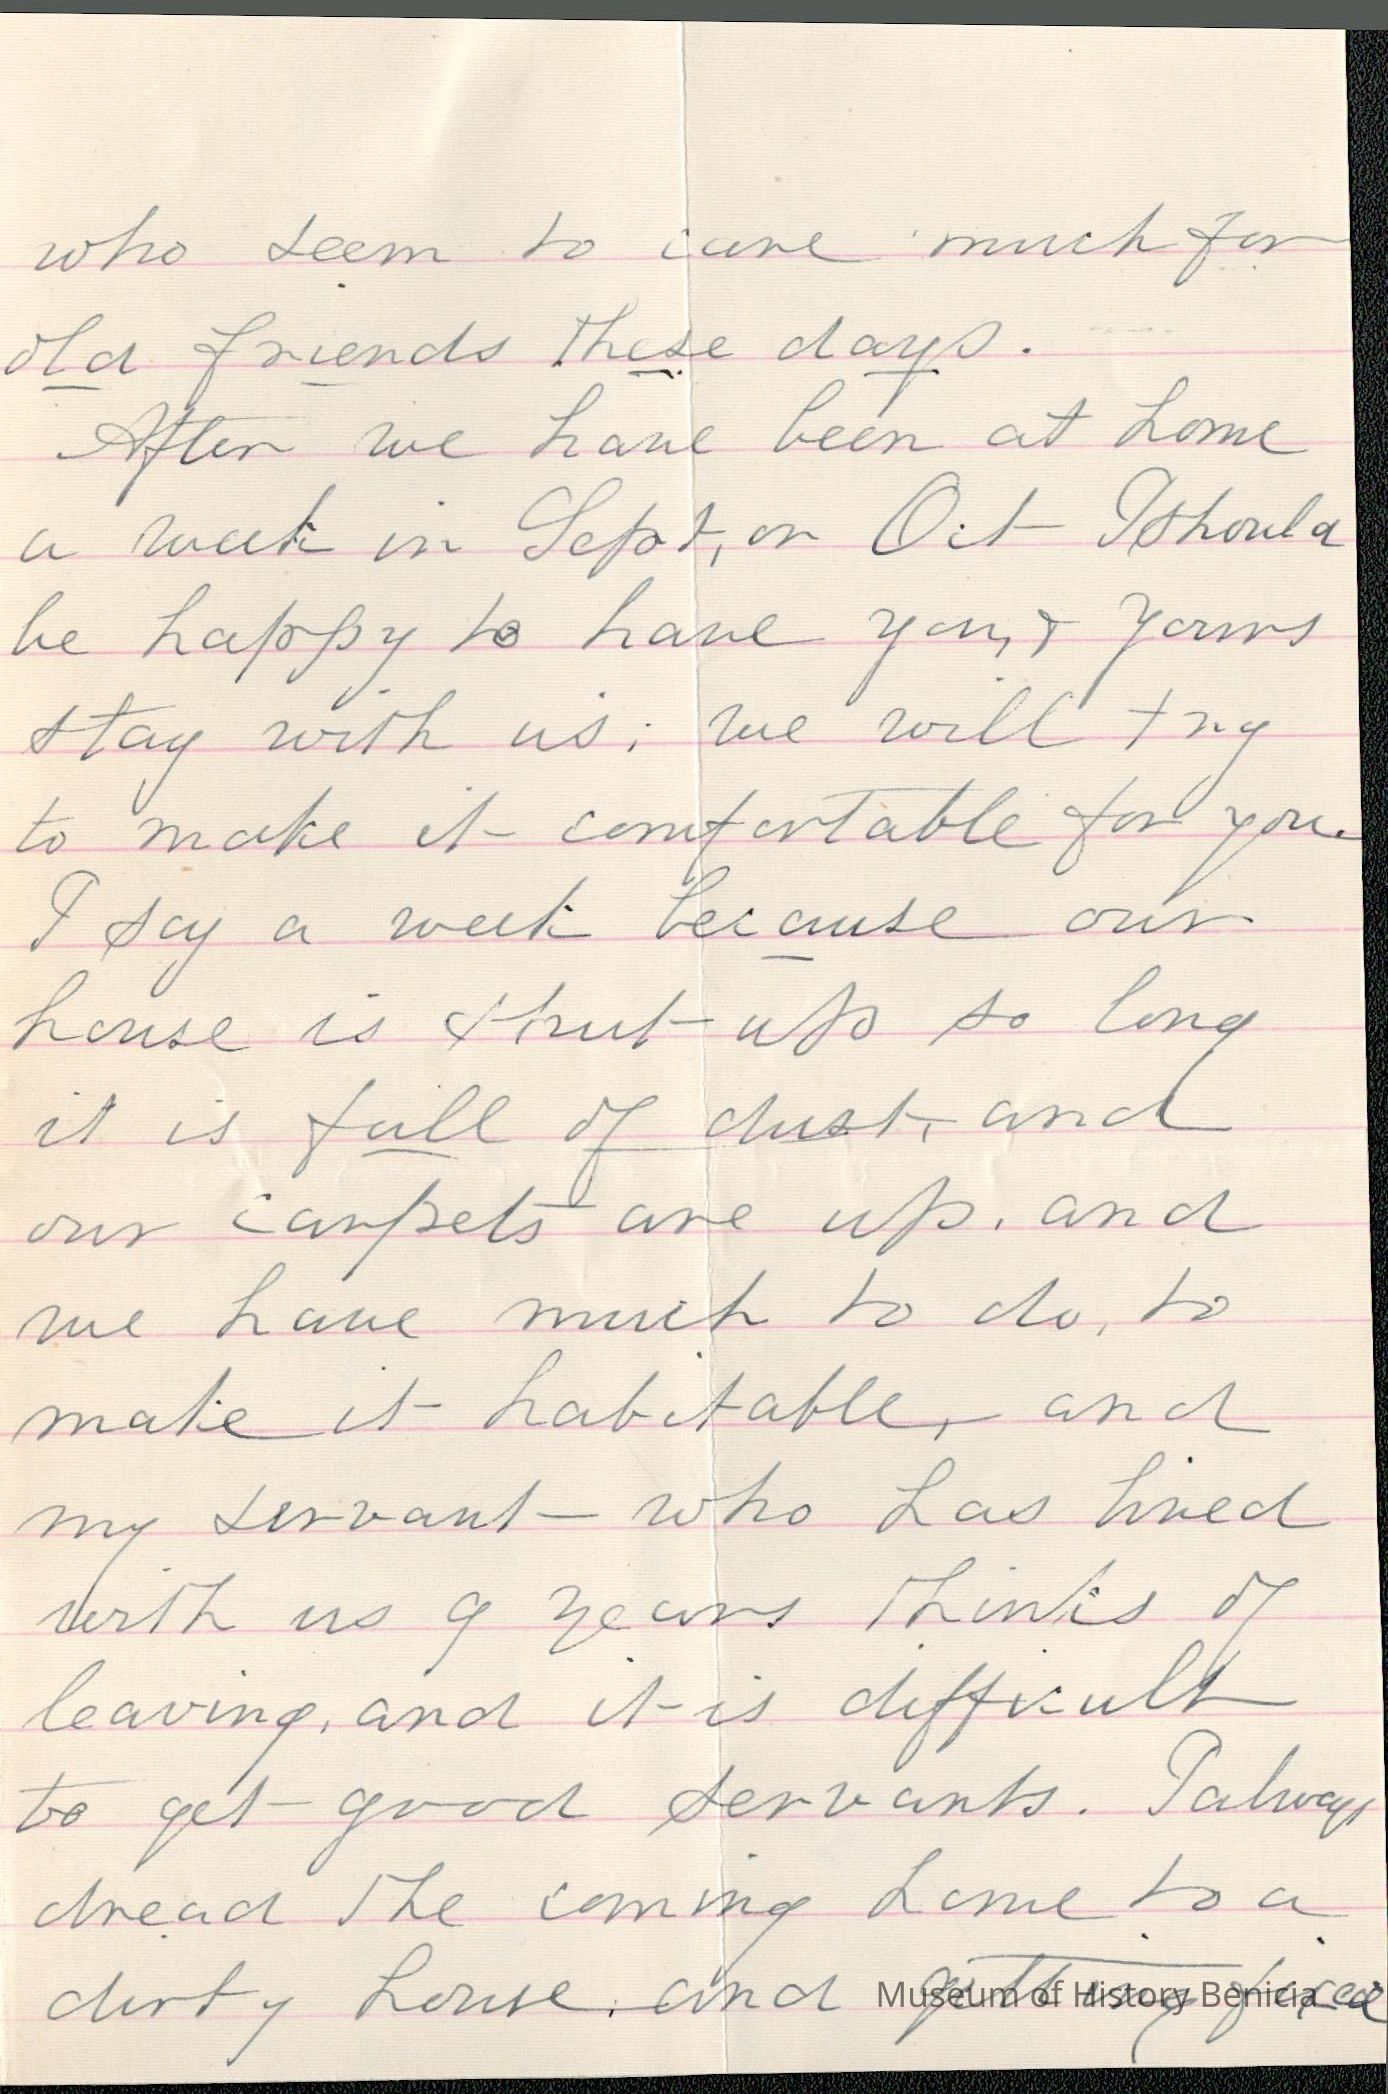 who seem to care much for
old friends these days.
After we have been at home
a week in Sept, or Oct I should
be happy to have you, & yours
stay with us; we will try
to make it comfortable for you.
I say a week because our
house is shut up so long
it is full of dust, and
our carpets are up, and
we have much to do, to
make it habitable, and
my servant who has lived
with us 9 years thinks of
leaving, and it is difficult
to get good servants. I always
dread the coming home to a
dirty house, and getting fixed
Museum of History Benicia